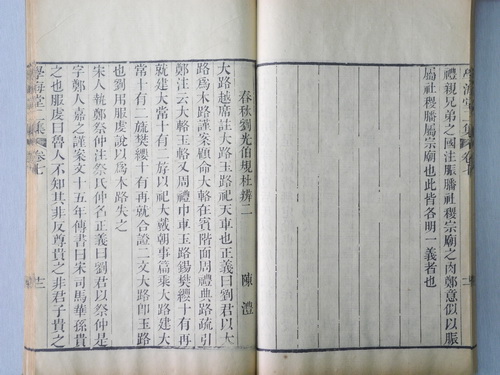 禮親兄弟之國注脤膰社稷宗廟之肉鄭意似以脤
屬社稷膰屬宗廟也此皆各明一義者也
春秋劉光伯規杜辨二
陳澧
大路越席註大路玉路祀天車也正義曰劉君以大
路爲木路謹案顧命大輅在賓階面周禮典路疏引
鄭注云大輅玉輅又周禮巾車玉路鍚樊纓十有再
就建大常十有二斿以祀大戴朝事篇乘大路建大
常十有二旒樊纓十有再就合證二文大路卽玉路
也劉用服虔說以爲木路失之
宋人執鄭祭仲注祭氏仲名正義曰劉君以祭仲是
字鄭人嘉之謹案文十五年傳書曰宋司馬華孫貴
之也服虔曰魯人不知其非反尊貴之非君子貴之
學海堂二集
卷七
十二